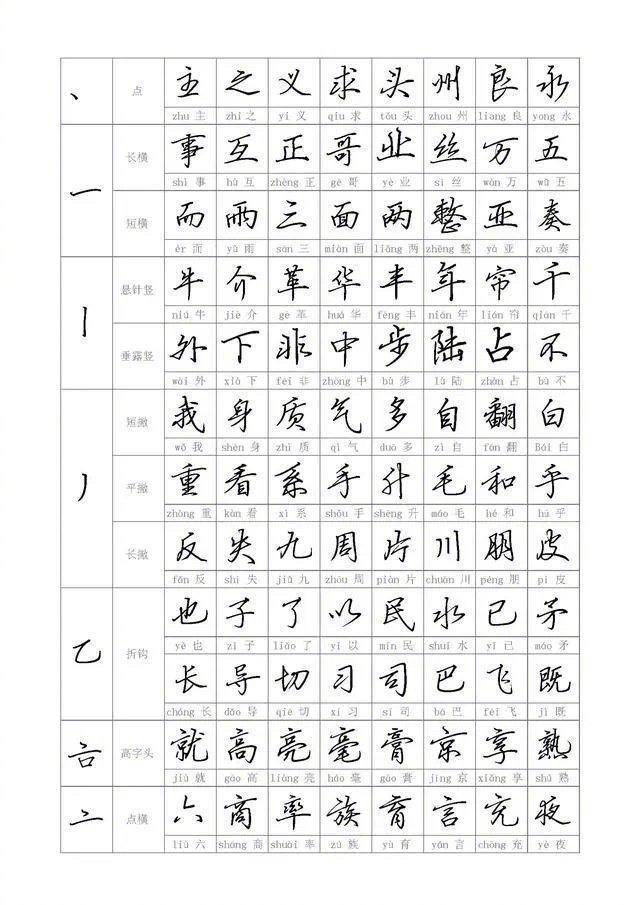 丶 点 主 之 义 求 头 州 良 永
zhu 主 zhī 之 yì 义 qiu 求 tóu 头 zhou 州 liang 良 yong 永
一 长横 事 互 正 哥 业 丝 万 五
shì 事 hù 互 zhèng 正 gē 哥 yè 业 sī 丝 wàn 万 wǔ 五
短横 而 雨 三 面 两 整 亚 奏
ér 而 yǔ 雨 sān 三 miàn 面 liǎng 两 zhěng 整 yà 亚 zòu 奏
丨 悬针竖 牛 介 革 华 丰 年 帘 千
niú 牛 jiè 介 gé 革 huá 华 fēng 丰 nián 年 lián 帘 qiān 千
垂露竖 外 下 非 中 步 陆 占 不
wài 外 xià 下 fēi 非 zhōng 中 bù 步 lù 陆 zhàn 占 bù 不
丿 短撇 我 身 质 气 多 自 翻 白
wǒ 我 shēn 身 zhì 质 qì 气 duō 多 zì 自 fān 翻 Bái 白
平撇 重 看 系 手 升 毛 和 乎
zhòng 重 kàn 看 xì 系 shǒu 手 shēng 升 máo 毛 hé 和 hū 乎
长撇 反 失 九 周 片 川 朋 皮
fǎn 反 shī 失 jiǔ 九 zhōu 周 piàn 片 chuān 川 péng 朋 pí 皮
乙 折钩 也 子 了 以 民 水 已 矛
yě 也 zǐ 子 liǎo 了 yǐ 以 mín 民 shuǐ 水 yǐ 已 máo 矛
长 导 切 习 司 巴 飞 既
cháng 长 dǎo 导 qiē 切 xí 习 sī 司 bā 巴 fēi 飞 jì 既
高字头 就 高 亮 毫 膏 京 享 熟
jiù 就 gāo 高 liàng 亮 háo 毫 gāo 膏 jīng 京 xiǎng 享 shú 熟
亠 点横 六 商 率 族 育 言 充 夜
liù 六 shāng 商 shuài 率 zú 族 yù 育 yán 言 chōng 充 yè 夜